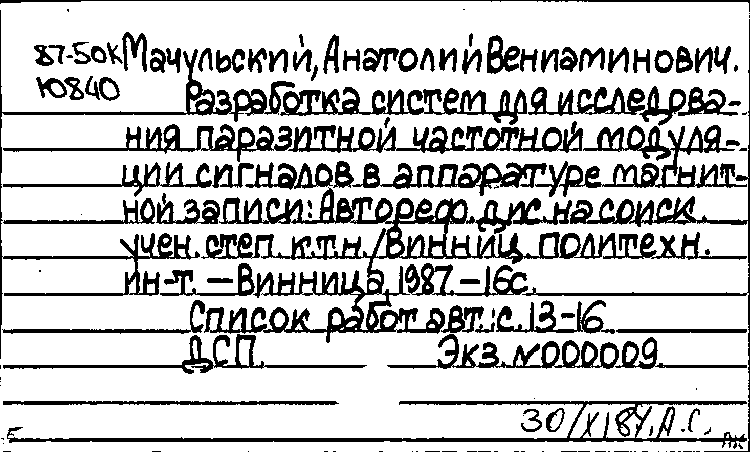 87-50К Мачульский, Анатолий Вениаминович.
Ю840 Разработка систем для исследова-
ния паразитной частотной модуля-
ции сигналов в аппаратуре магнит-
ной записи: Автореф. дис. на соиск.
учен. степ. к.т.н. / Винниц. политехн.
ин-т. — Винница, 1987. — 16с.
Список работ авт.: с. 13-16
ДСП. Экз. №000009.
30/X 184. А.С.